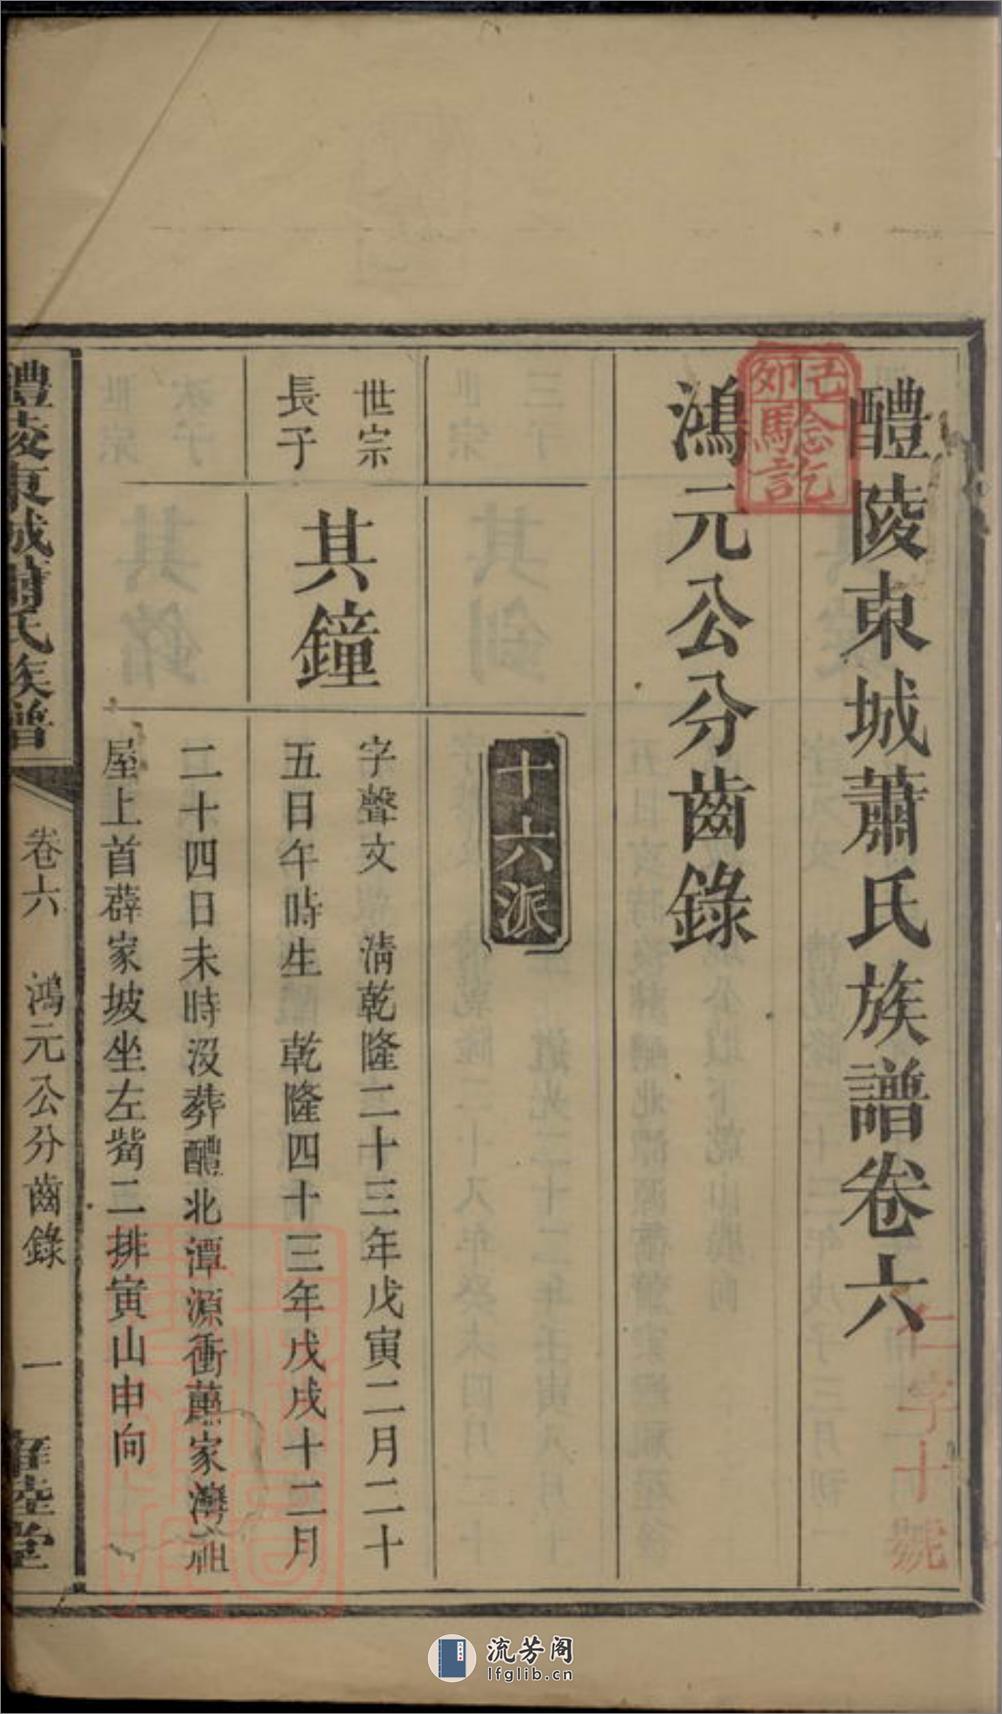 醴陵東城蕭氏族譜卷六
鴻元公分齒錄
十六派
世宗
長子
其鐘
字聲文 清乾隆二十三年戊寅二月二十
五日午時生 乾隆四十三年戊戌十二月
二十四日未時沒葬醴北潭源衝蕭家灣祖
屋上首薜家坡坐左觜二排寅山申向
醴陵東城蕭氏族譜
卷六 鴻元公分齒錄 一
仁字十號
流芳阁
lfglib.cn